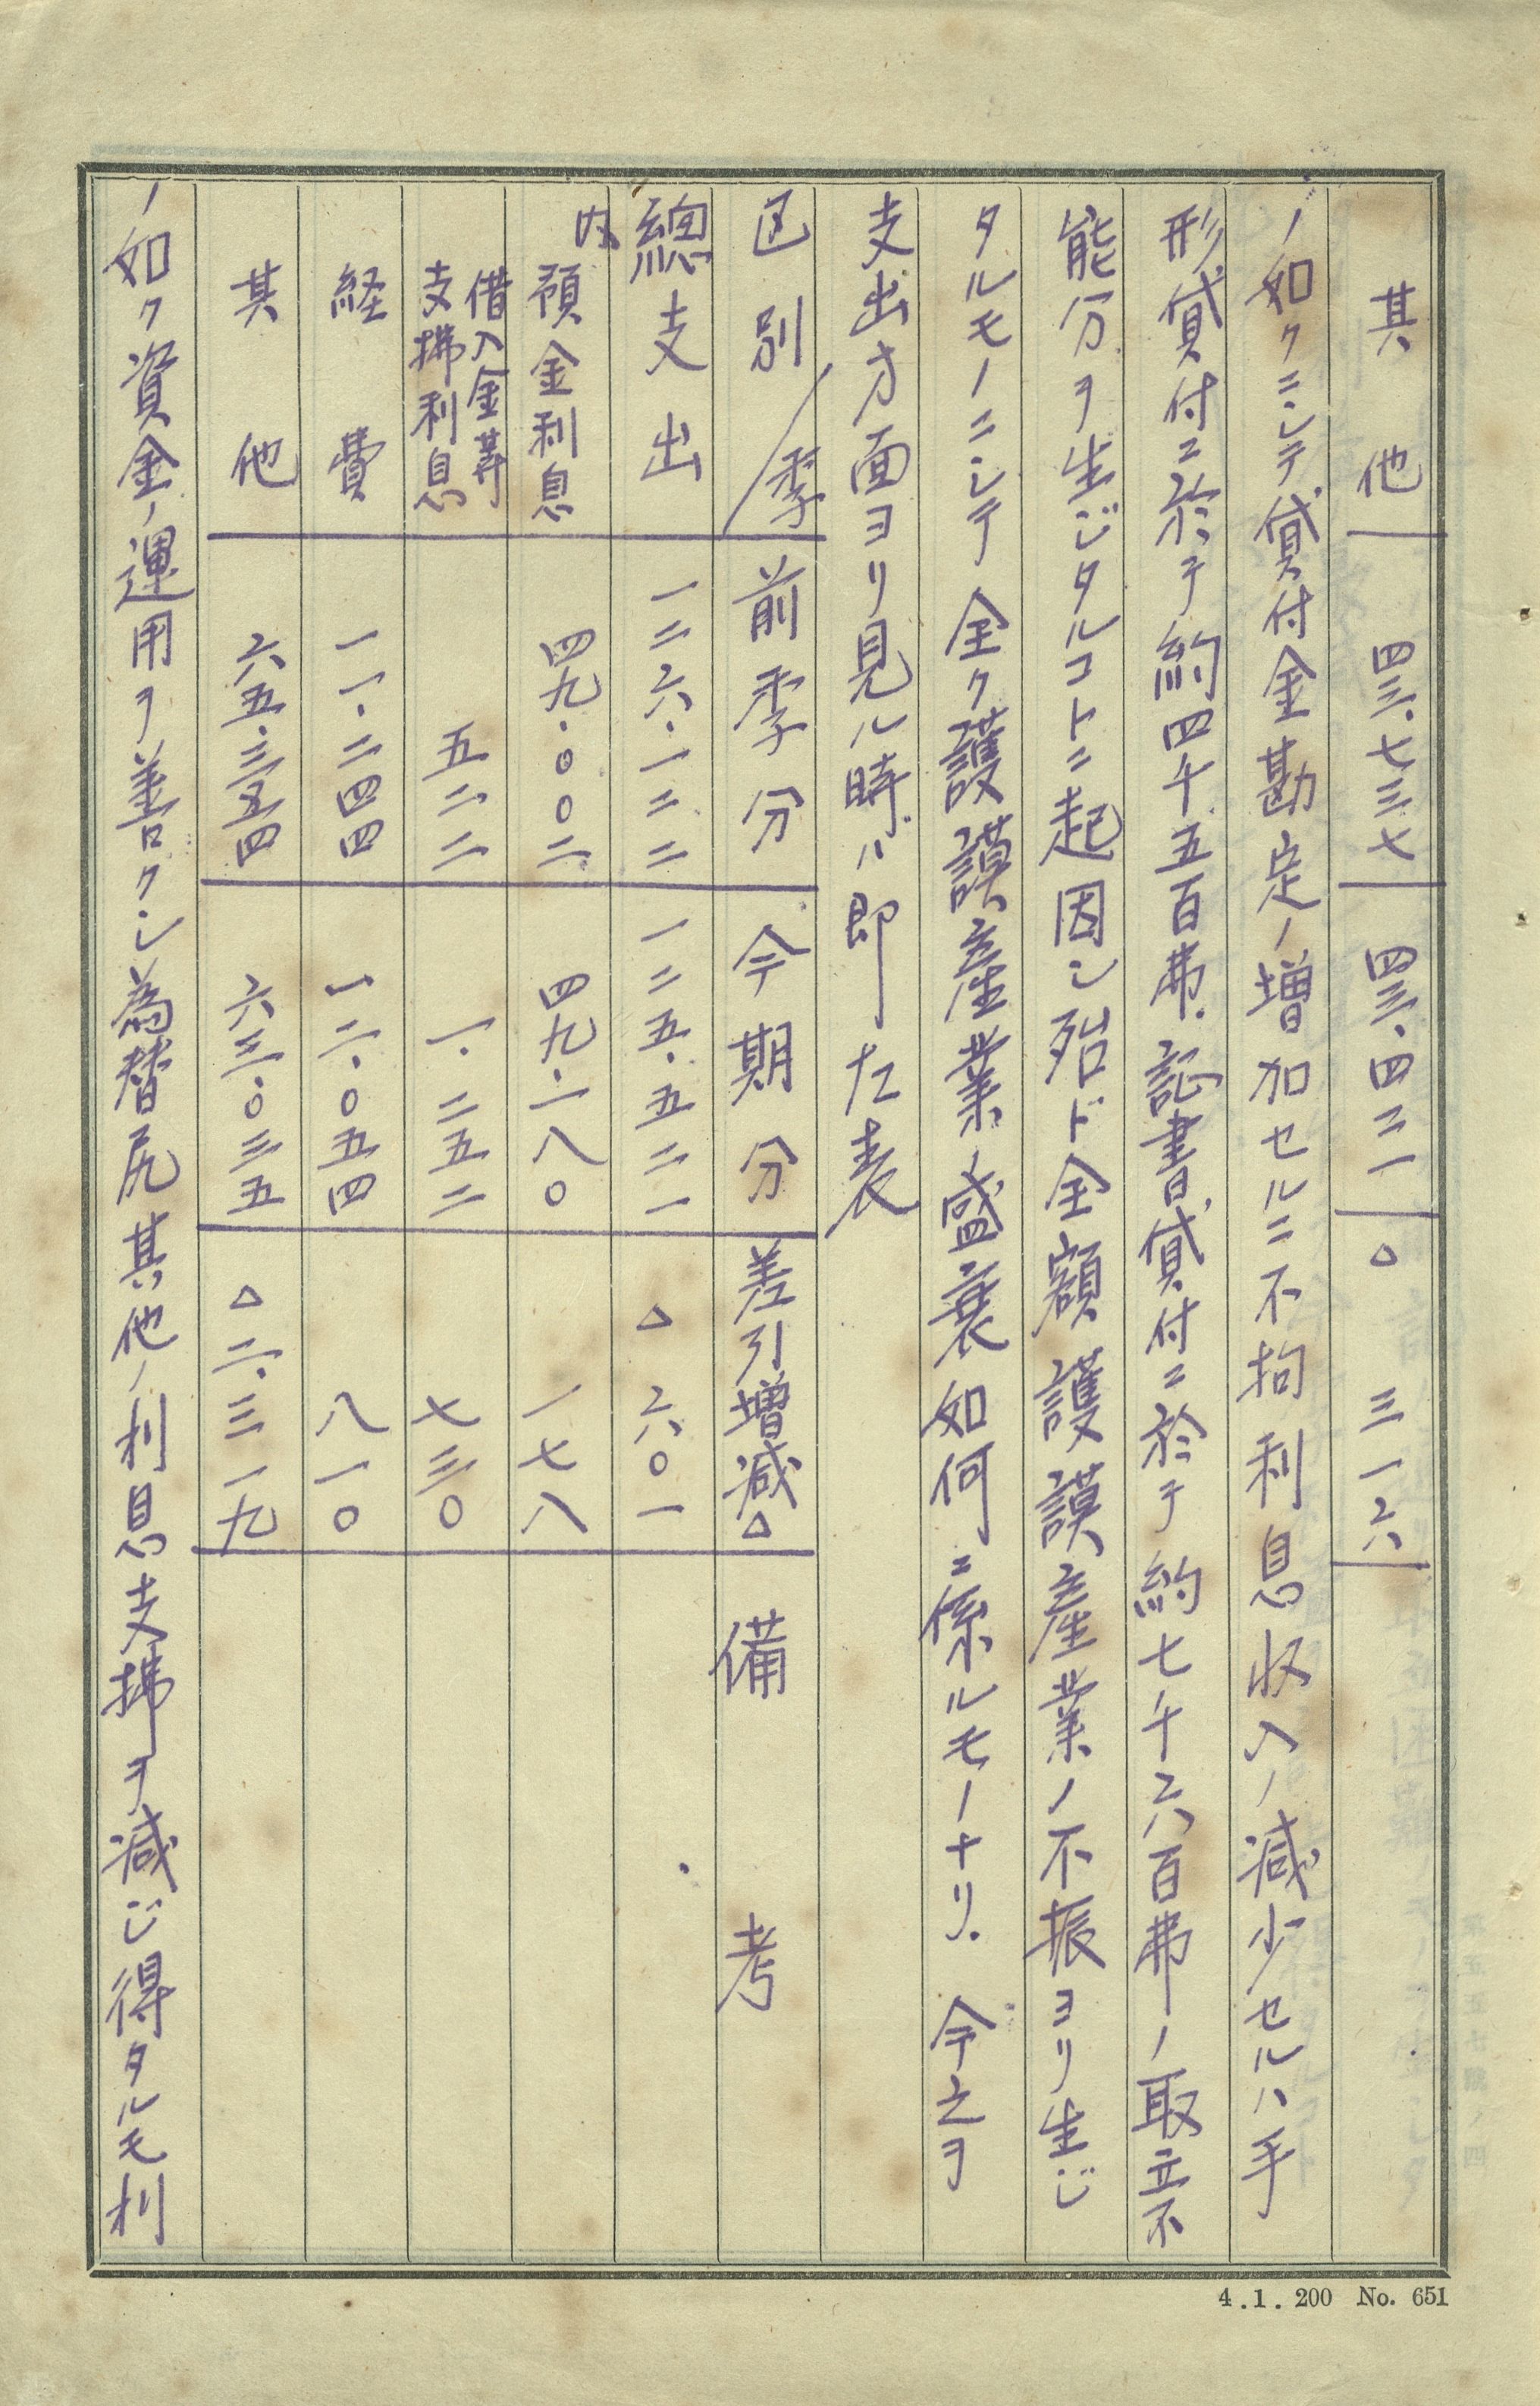 其他 四三.七三七 四三.四二一 △ 三一六
ノ如クニシテ貸付金勘定ノ増加セルニ不拘利息収入ノ減少セルハ手
形貸付ニ於テ約四千五百弗.証書貸付ニ於テ約七千六百弗ノ取立不
能分ヲ生ジタルコトニ起因シ殆ド全額護謨産業ノ不振ヨリ生ジ
タルモノニシテ全ク護謨産業ノ盛衰如何ニ係ルモノナリ. 今之ヲ
支出方面ヨリ見ル時ハ即チ左表
区別/季 前季分 今期分 差引増減△ 備考
總支出 一二六.一二二 一二五.五二一 △ 六〇一
内 預金利息 四九.〇〇二 四九.一八〇 一七八
借入金等支拂利息 五二二 一.二五二 七三〇
経費 一一.二四四 一二.〇五四 八一〇
其他 六五.三五四 六三.〇三五 △二.三一九
ノ如ク資金ノ運用ヲ善ロクシ為替尻其他ノ利息支拂ヲ減ジ得タルモ利
4.1.200 No. 651